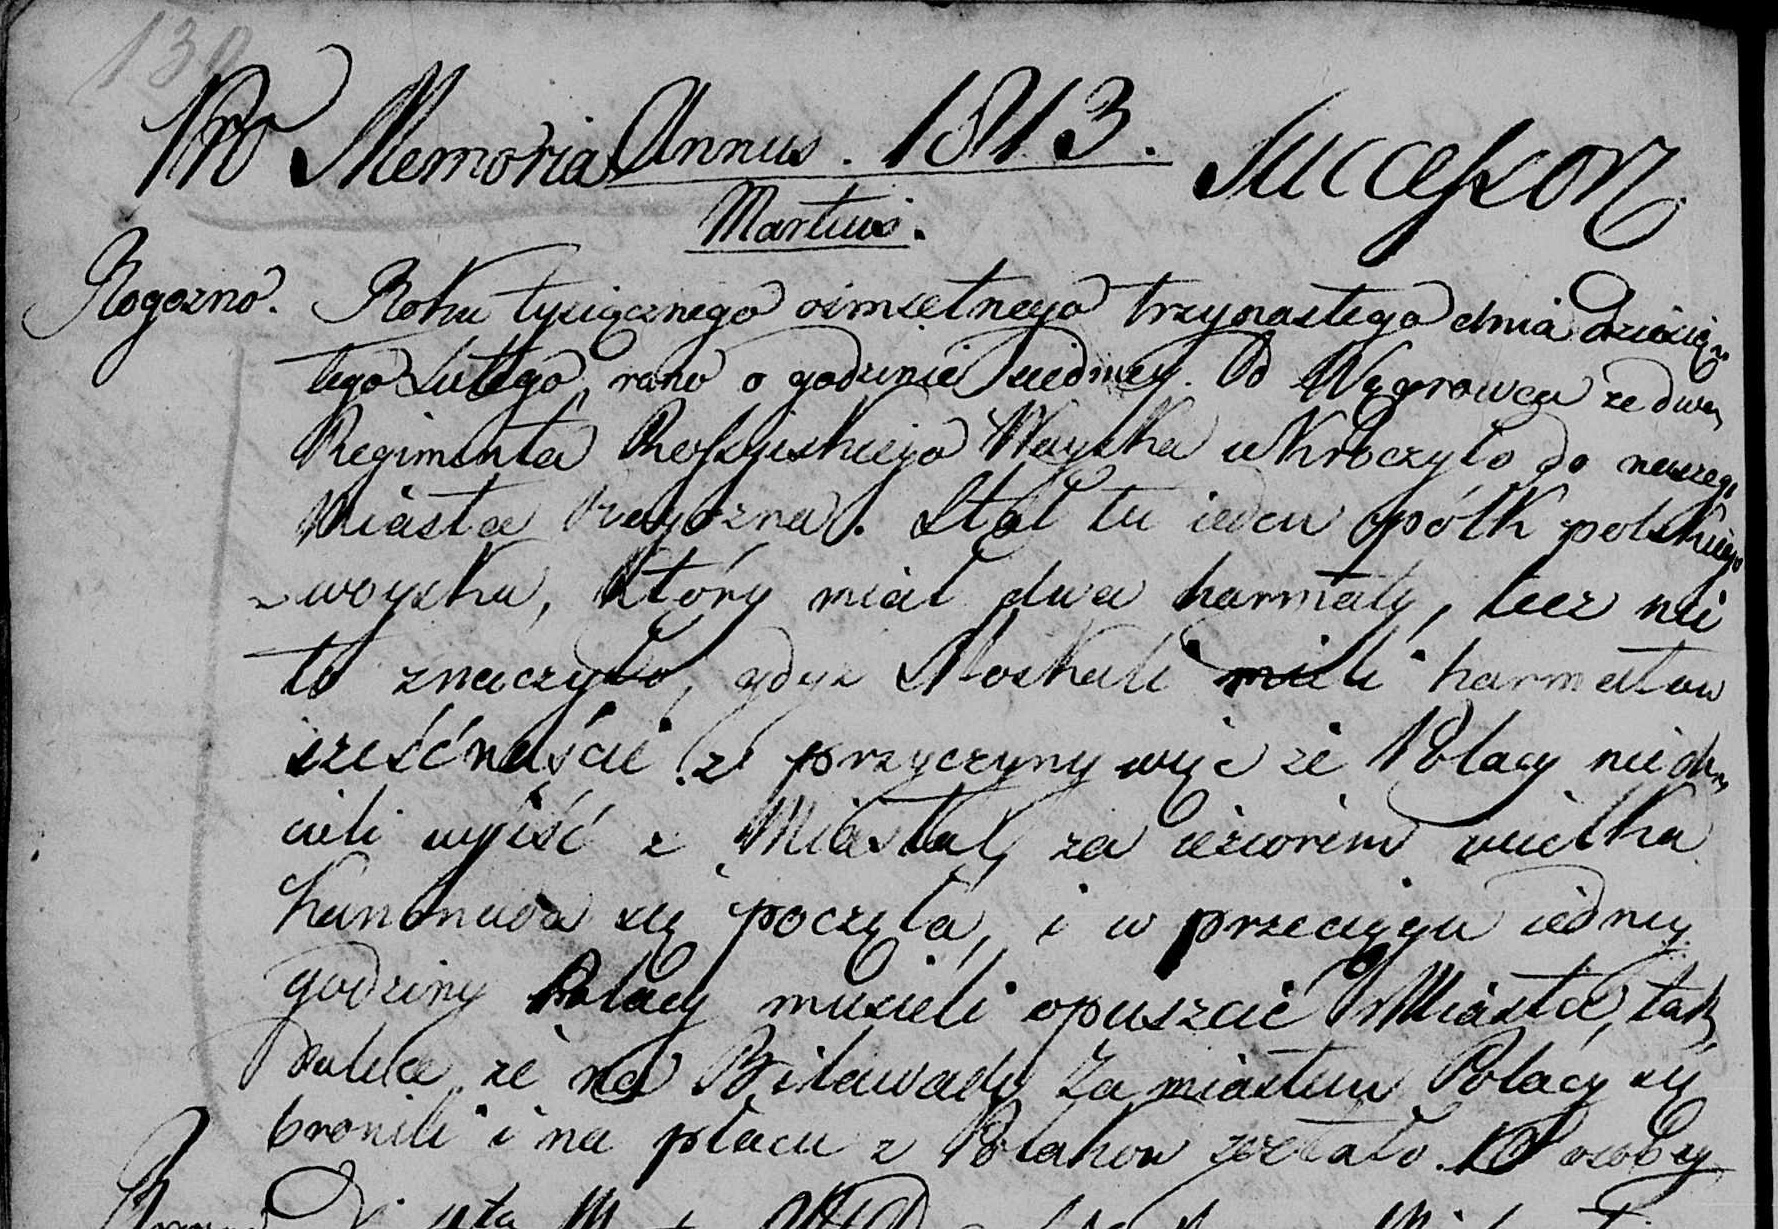 130
Pro Memoria Annus. 1813. Successor
Martius.
Rogozno. Roku tysiącznego osimsetnego trzynastego dnia dziesią
tego Lutego, rano o godzinie siedmey. Od Wągrowca ze dwa
Regimenta Rossyiskiego Woyska wkroczyło do naszego
Miasta Rogozna. Stał tu ieden połk polskiego
woyska, który miał dwa harmaty, lecz nic
to znaczyło, gdyż Moskali mieli harmatow
sześćnaście z przyczyny więc że Polacy nie ch
cieli wyiść z Miasta, za ieziorem wielka
kanonada się poczęła, i w przeciągu iedney
godziny Polacy musieli opuszcić Miasto, tak
daleko, że na Bilawady za miastem Polacy się
bronili i na placu z Polakow zostało osoby